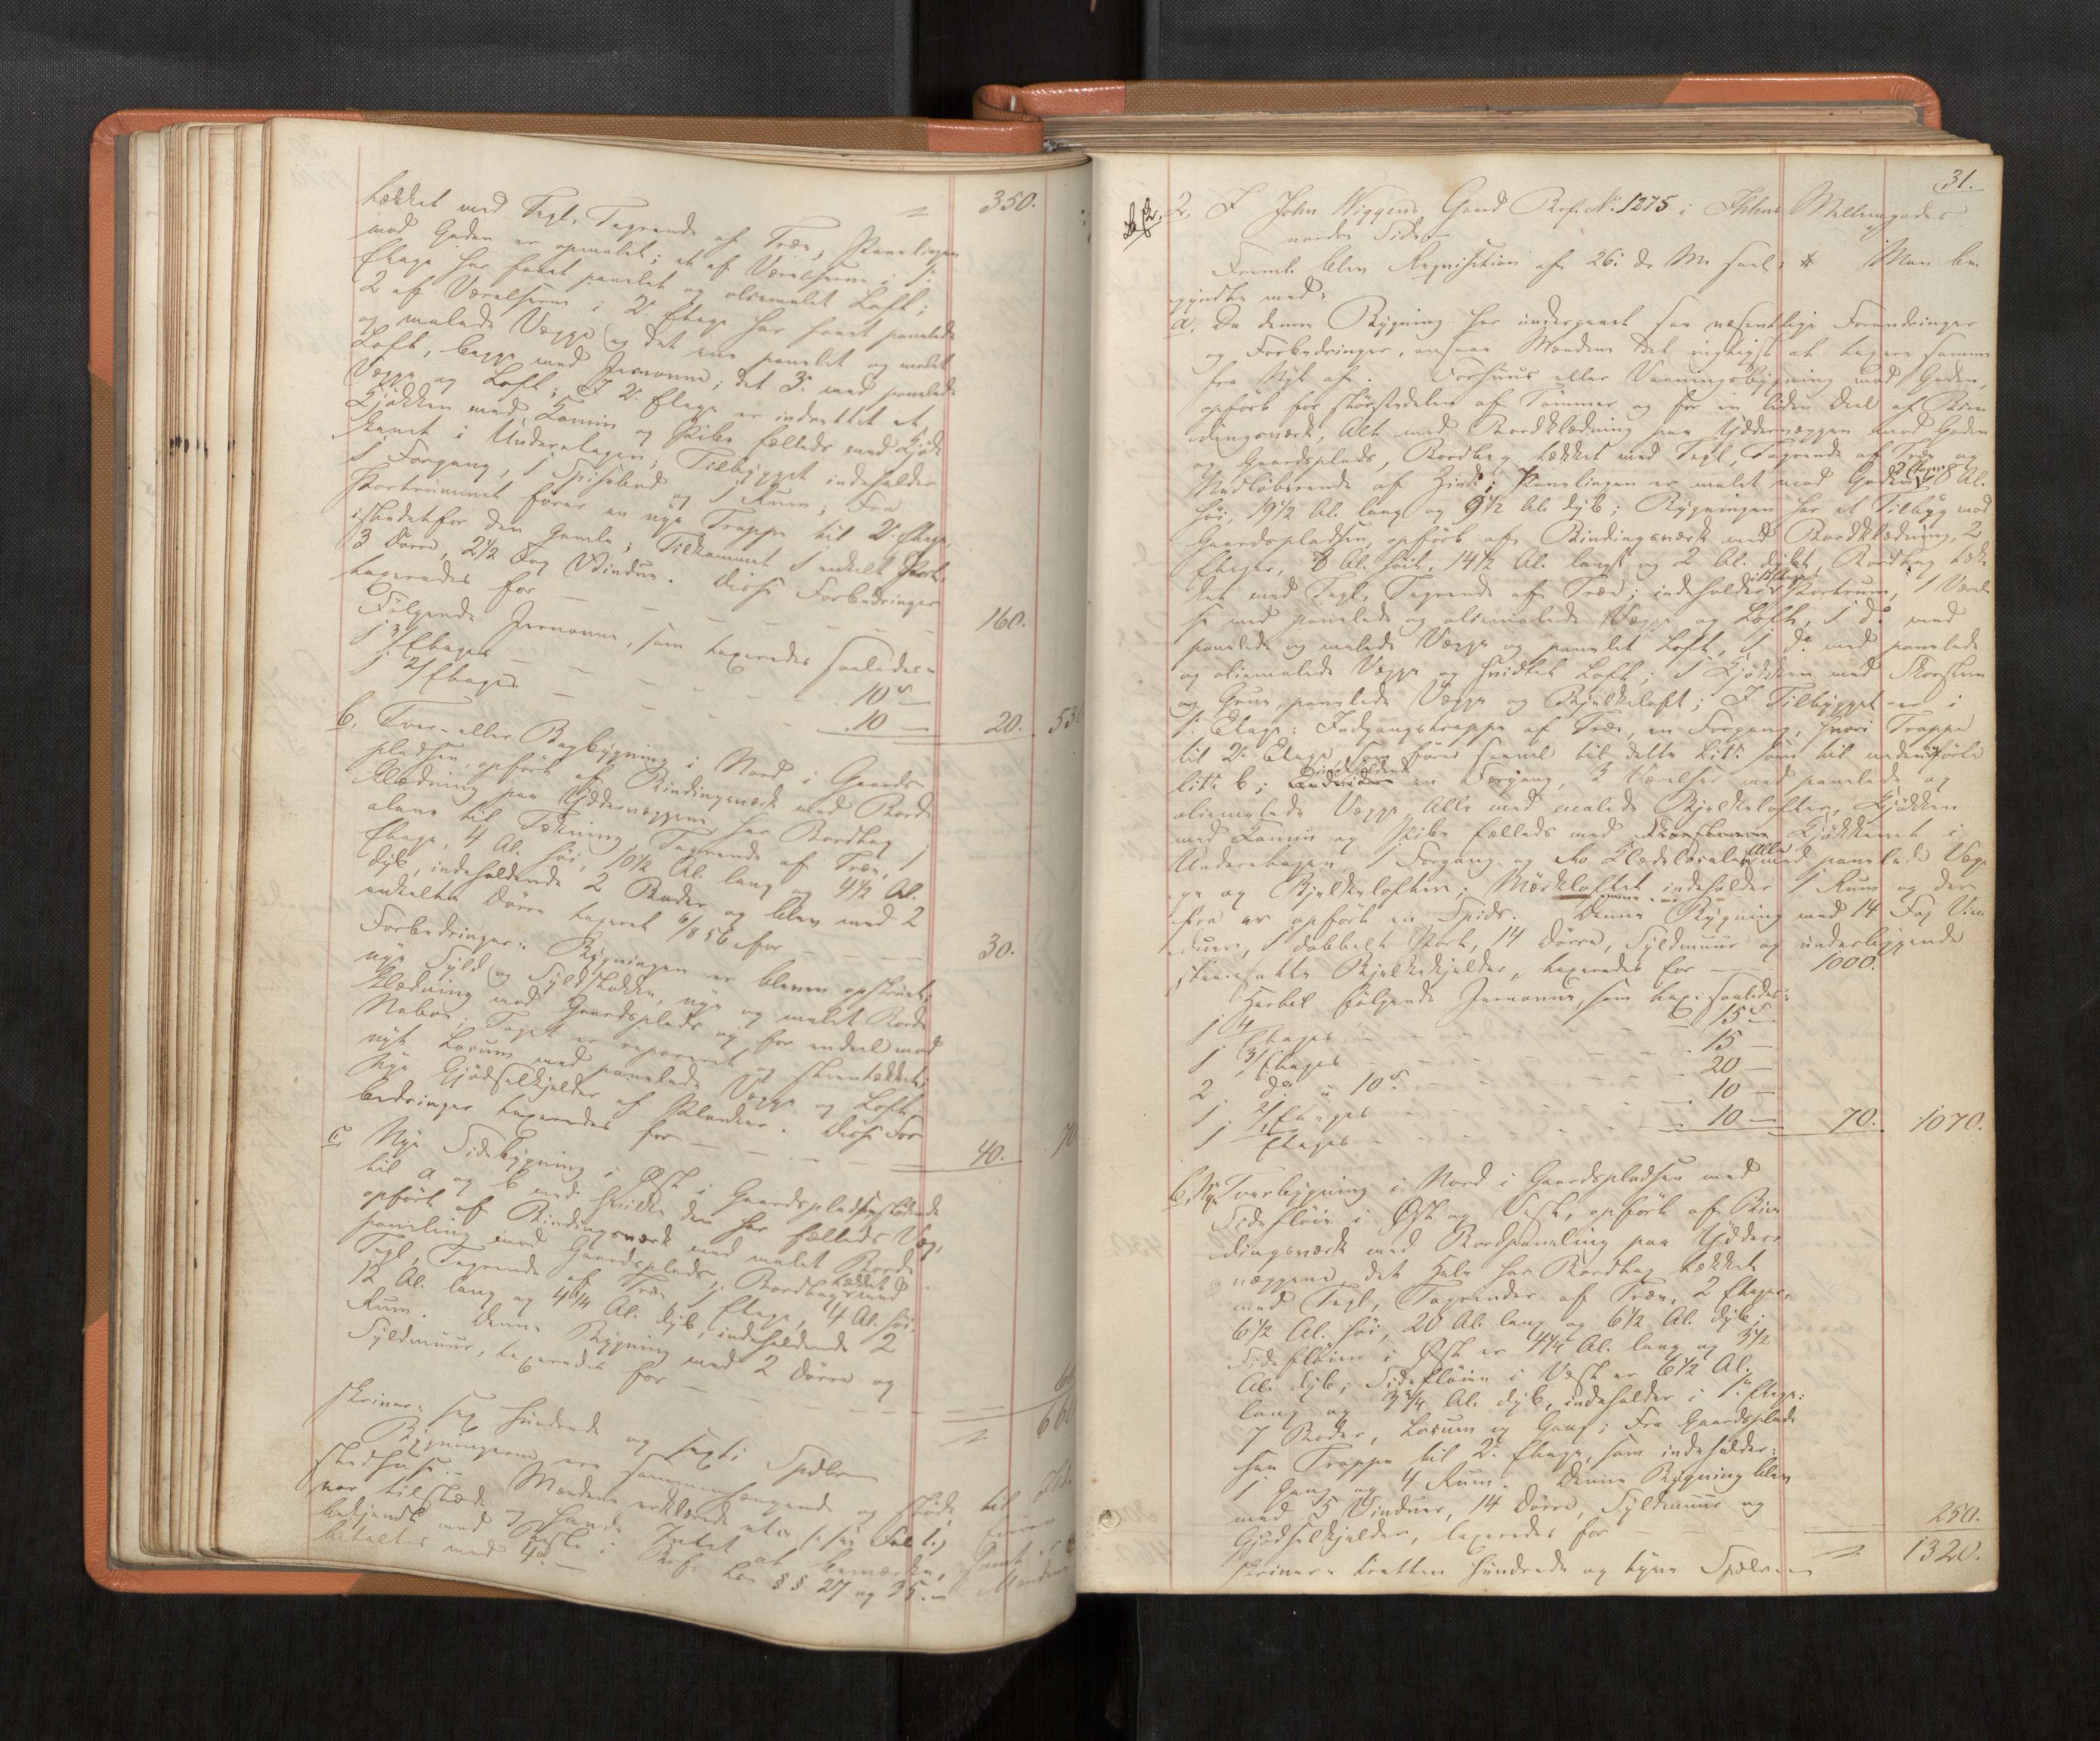 350.
tækket med Tagl, Tagrende af Træ; Panelingen
mod Gaden er opmalet; et af Værelserne i 1ste
Etage har faaet panelet og oliemalet Loft;
2 af Værelserne i 2den Etage har faaet panelede
og malede Vægge og det ene panelet og malet
Loft, begge med Jernovne; det 3die med panelede
Vægge og Loft; I 2den Etage er indrettet et
Kjøkken med Kamin og Pibe fælleds med Kjøk-
kenet i Underetagen; Tilbygget indeholder
1 Forgang, 1 Spisebod og 1 Rum; Fra
Portrummet fører en nye Trappe til 2den Etage,
istedetfor den gamle; Tilkommet 1 enkelt Port,
3 Dørre, 2 1/2 Fag Vinduer. Disse Forbedringer
taxeredes for 160.
Følgende Jernovne, som taxeredes saaledes:
1 3/Etages 10
1 2/Etages 10 20. 530
b, Tver- eller Bagbygning i Nord i Gaards-
pladsen, opført af Bindingsværk med Bord-
klædning paa Yddervæggene, har Bordtag
alene til Tækning, Tagrende af Træ, 1
Etage, 4 Al. høi, 10 1/2 Al. lang og 4 1/2 Al.
dyb, indeholdende 2 Boder og blev med 2
enkelte Dørre taxeret 6/8 56 for 30.
Forbedringer: Bygningen er bleven opskruet,
nye Syld og Syldstokke, nye og malet Bord-
klædning mod Gaardsplads og for endeel mod
Naboe; Taget er repareret og steentækket,
nyt Locum med panelede Vægge og Loft,
nye Gjødselkjelder af Planker. Disse For-
bedringer taxeredes for 40. 70
c, Nye Sidebygning i Øst i Gaardspladsen, stødende
til a og b med hvilke den har fælleds Væg,
opført af Bindingsværk med malet Bord-
paneling mod Gaardsplads, Bordtag tækket med
Tagl, Tagrende af Træ, 1 Etage, 4 Al. høi,
12 Al. lang og 4 1/4 Al. dyb, indeholdende 2
Rum. Denne Bygning med 2 Dørre og
Syldmuur, taxeredes for 60
660
skriver: sex hundrede og sexti Spdlr
Bygningerne ere sammenhængende og støde til
Mændene erklærede at
at bemærke, samt
§§ 27 og 35.
31.
2, I John Wiggens Gaard Brf. No. 1275 i Ihlens Mellemgades
nordre Side
Freml. blev Requisition af 26de ds. Mn. saal. * Man be-
gyndte med:
a, Da denne Bygning har undergaaet saa væsentlige Forandringer
og Forbedringer, ansaae Mændene det rigtigst at taxere samme
fra Nyt af. Forhuus eller Vaaningsbygning mod Gaden,
opført for størstedelen af Tømmer og for en liden Deel af Bin-
dingsværk, Alt med Bordklædning paa Yddervæggen mod Gaden
og Gaardsplads, Bordtag tækket med Tagl, Tagrende af Træ og
Nedløbsrende af Zink; Panelingen er malet mod Gaden, 2 Etager 8 Al.
høi, 19 1/2 Al. lang og 9 1/2 Al. dyb; Bygningen har et Tilbyg mod
Gaardspladsen, opført af Bindingsværk med Bordklædning, 2
Etager, 8 Al. høit, 14 1/2 Al. langt og 2 Al. dybt, Bordtag tæk-
ket med Tagl, Tagrende af Træ; indeholder i 1ste Etage: Portrum, 1 Værel-
se med panelede og oliemalede Vægge og Loft, 1 do. med
panelede og malede Vægge og panelet Loft, 1 do. med panelede
og oliemalede Vægge og hvidtet Loft; 1 Kjøkken med Skorsten
og Grue, panelede Vægge og Bjelkeloft; I Tilbygget er i
1ste Etage: Indgangstrappe af Træ, en Forgang, hvori Trappe
til 2den Etage, som fører saavel til dette Litr. som til nedenanførte
litr. b; en Forgang, 3 Værelser med panelede og
oliemalede Vægge, Alle med malede Bjelkelofter, Kjøkken
med Kamin og Pibe fælleds med Kjøkkenet i
Underetagen, 1 Forgang og to Klædelocaler, Alle med panelede Væg-
ge og Bjelkelofter; Mørkloftet indeholder 1 Rum og der-
fra er opført en Spids. Denne Bygning med 14 Fag Vin-
duer, 1 dobbelt Port, 14 Dørre, Syldmuur og underliggende
steensatte Bjelkekjelder, taxeredes for 1000.
Hertil følgende Jernovne, som tax. saaledes:
1 4/Etages 15
1 3/Etages 15
2 do. a 10 20
1 2/Etages 10
1 1/Etages 10 70. 1070.
b, Nye Tverbygning i Nord i Gaardspladsen med
Sidefløie i Øst og Vest, opført af Bin-
dingsværk med Bordpaneling paa Ydder-
væggene, det Hele har Bordtag tækket
med Tagl, Tagrender af Træ, 2 Etager,
6 1/2 Al. høi, 20 Al. lang og 6 1/2 Al. dyb;
Sidefløien i Øst er 4 1/4 Al. lang og 3 1/2
Al. dyb; Sidefløien i Vest er 6 1/2 Al.
lang og 3 3/4 Al. dyb, indeholder i 1ste Etage:
7 Boder, Locum og Gang; Fra Gaardsplad-
sen Trappe til 2den Etage, som indeholder:
1 Gang og 4 Rum. Denne Bygning blev
med 5 Vinduer, 14 Dørre, Syldmuur og
Gjødselkjelder, taxeredes for 250.
1320.
skriver: tretten hundrede og tyve Spdlr